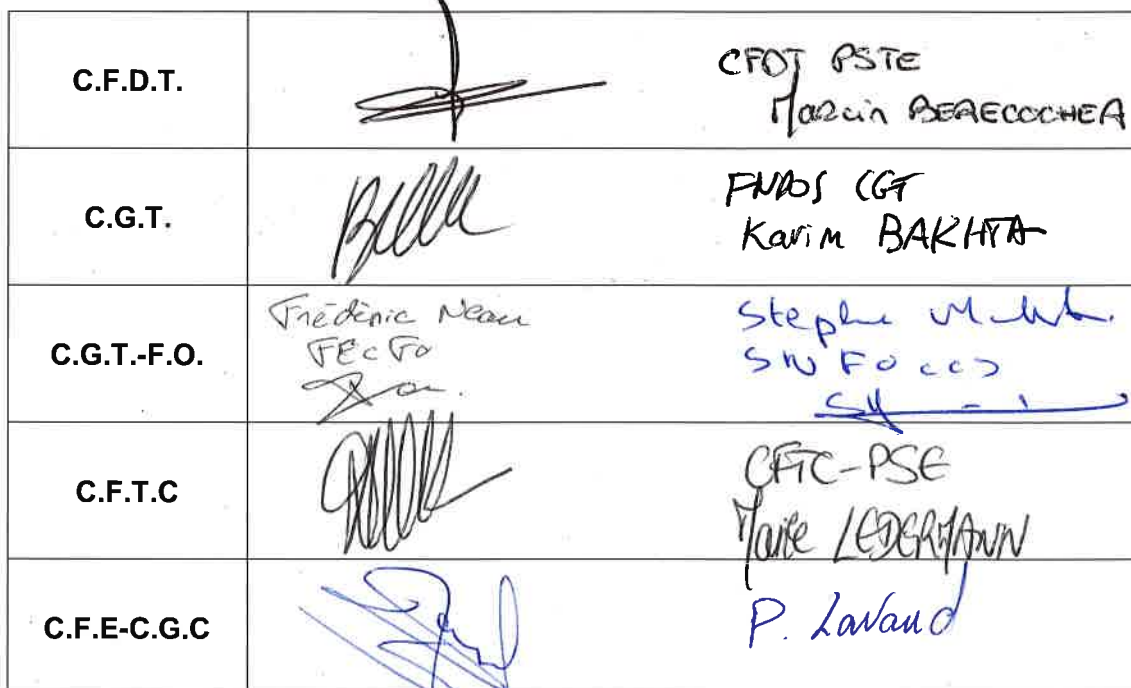 C.F.D.T.
CFDT PSTE
BERECOCHEA
C.G.T.
FNPOS CGT
Karim BAKHTA
C.G.T.-F.O.
Frédéric Neau
FEC FO
Stephane
SN FO
C.F.T.C
CFTC-PSE
LEDERMANN
C.F.E-C.G.C
P. Lavaud